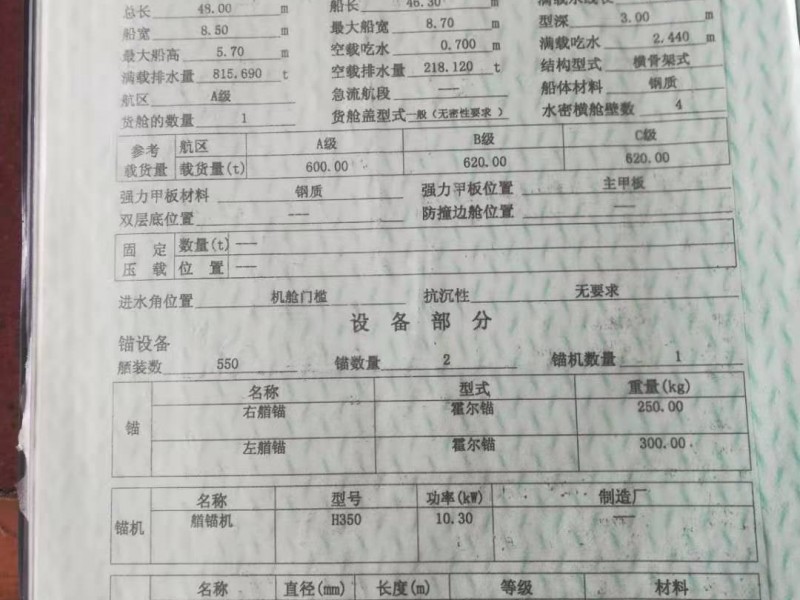 总长 48.00 m 船长 46.30 m 满载水线长
船宽 8.50 m 最大船宽 8.70 m 型深 3.00 m
最大船高 5.70 m 空载吃水 0.700 m 满载吃水 2.440 m
满载排水量 815.690 t 空载排水量 218.120 t 结构型式 横骨架式
航区 A级 急流航段 --- 船体材料 钢质
货舱的数量 1 货舱盖型式 一般(无密性要求) 水密横舱壁数 4
参考载货量 航区 A级 B级 C级
载货量(t) 600.00 620.00 620.00
强力甲板材料 钢质 强力甲板位置 主甲板
双层底位置 --- 防撞边舱位置 ---
固定压载 数量(t) ---
位置 ---
进水角位置 机舱门槛 抗沉性 无要求
设备部分
锚设备
舾装数 550 锚数量 2 锚机数量 1
锚 名称 型式 重量(kg)
右艏锚 霍尔锚 250.00
左艏锚 霍尔锚 300.00
锚机 名称 型号 功率(kW) 制造厂
艏锚机 H350 10.30 ---
名称 直径(mm) 长度(m) 等级 材料